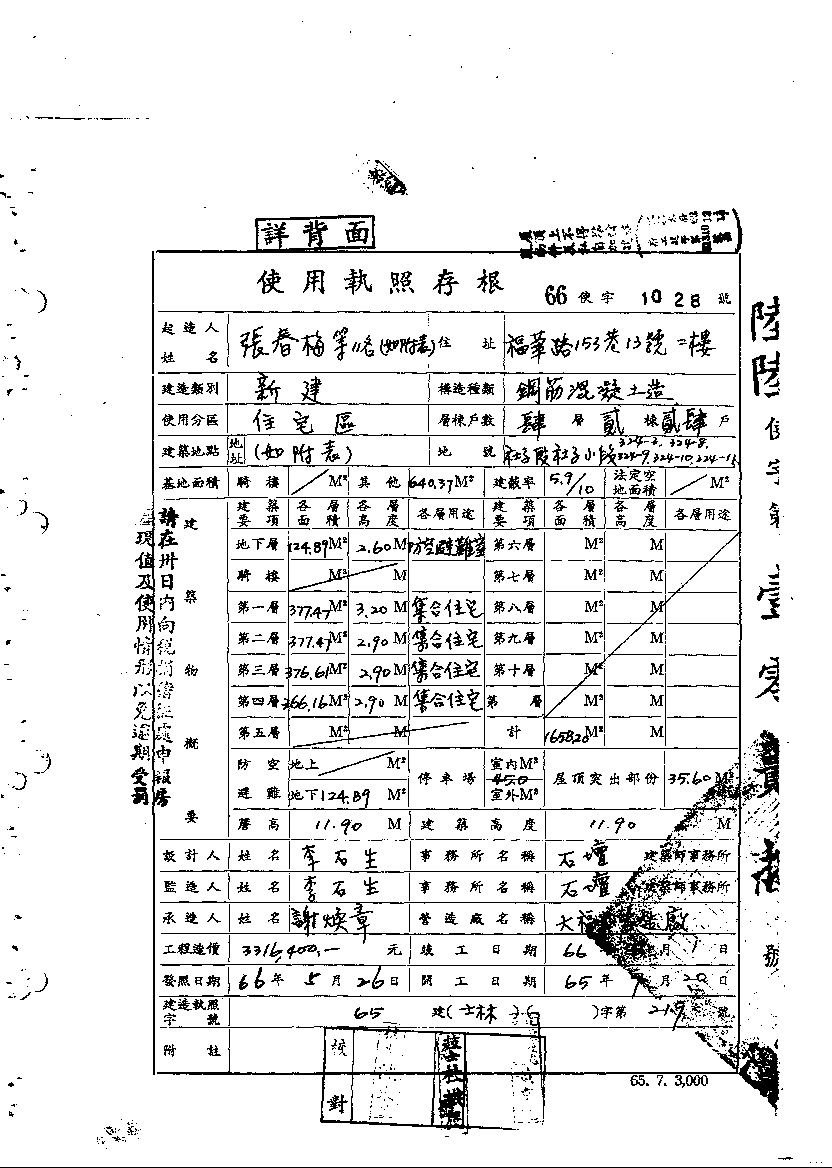 詳背面
使用執照存根
66 使字 1028 號
起造人姓名 張春梅等11名(如附表) 住址 福華路153巷13號二樓
建造類別 新建 構造種類 鋼筋混凝土造
使用分區 住宅區 層棟戶數 肆層貳棟貳肆戶
建築地點 地址 (如附表) 地號 社子段社子小段324-2, 324-8, 324-9, 324-10, 324-11
基地面積 騎樓 M² 其他 640.37M² 建蔽率 5.9/10 法定空地面積 M²
建築要項 各層面積 各層高度 各層用途 建築要項 各層面積 各層高度 各層用途
地下層 124.89M² 2.60M 防空避難室 第六層 M² M
騎樓 M² M 第七層 M² M
第一層 377.47M² 3.20M 集合住宅 第八層 M² M
第二層 377.47M² 2.90M 集合住宅 第九層 M² M
第三層 376.61M² 2.90M 集合住宅 第十層 M² M
第四層 366.16M² 2.90M 集合住宅 第 層 M² M
第五層 M² M 計 1658.20M² M
建築物概要
防空避難 地上 M² 地下124.89 停車場 室內M² 45.0 室外M² 屋頂突出部份 35.60M²
簷高 11.90 M 建築高度 11.90 M
設計人 姓名 李石生 事務所名稱 石壇 建築師事務所
監造人 姓名 李石生 事務所名稱 石壇 建築師事務所
承造人 姓名 謝煥章 營造廠名稱 大福 營造廠
工程造價 3316,400,- 元 竣工日期 66 月 1 日
發照日期 66年5月26日 開工日期 65年 月20日
建造執照字號 65 建(士林 )字第 219 號
附註
校對
65. 7. 3,000
請在卅日內向稅捐稽征處申報房
屋現值及使用情形以免逾期受罰
陸陸使字第壹零貳 號